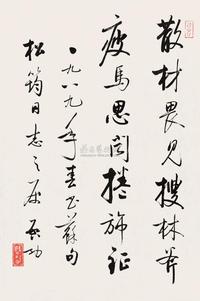 散材畏见搜林斧
疲马思闻卷旆钲
一九八九年春书苏句
松筠同志之属 启功